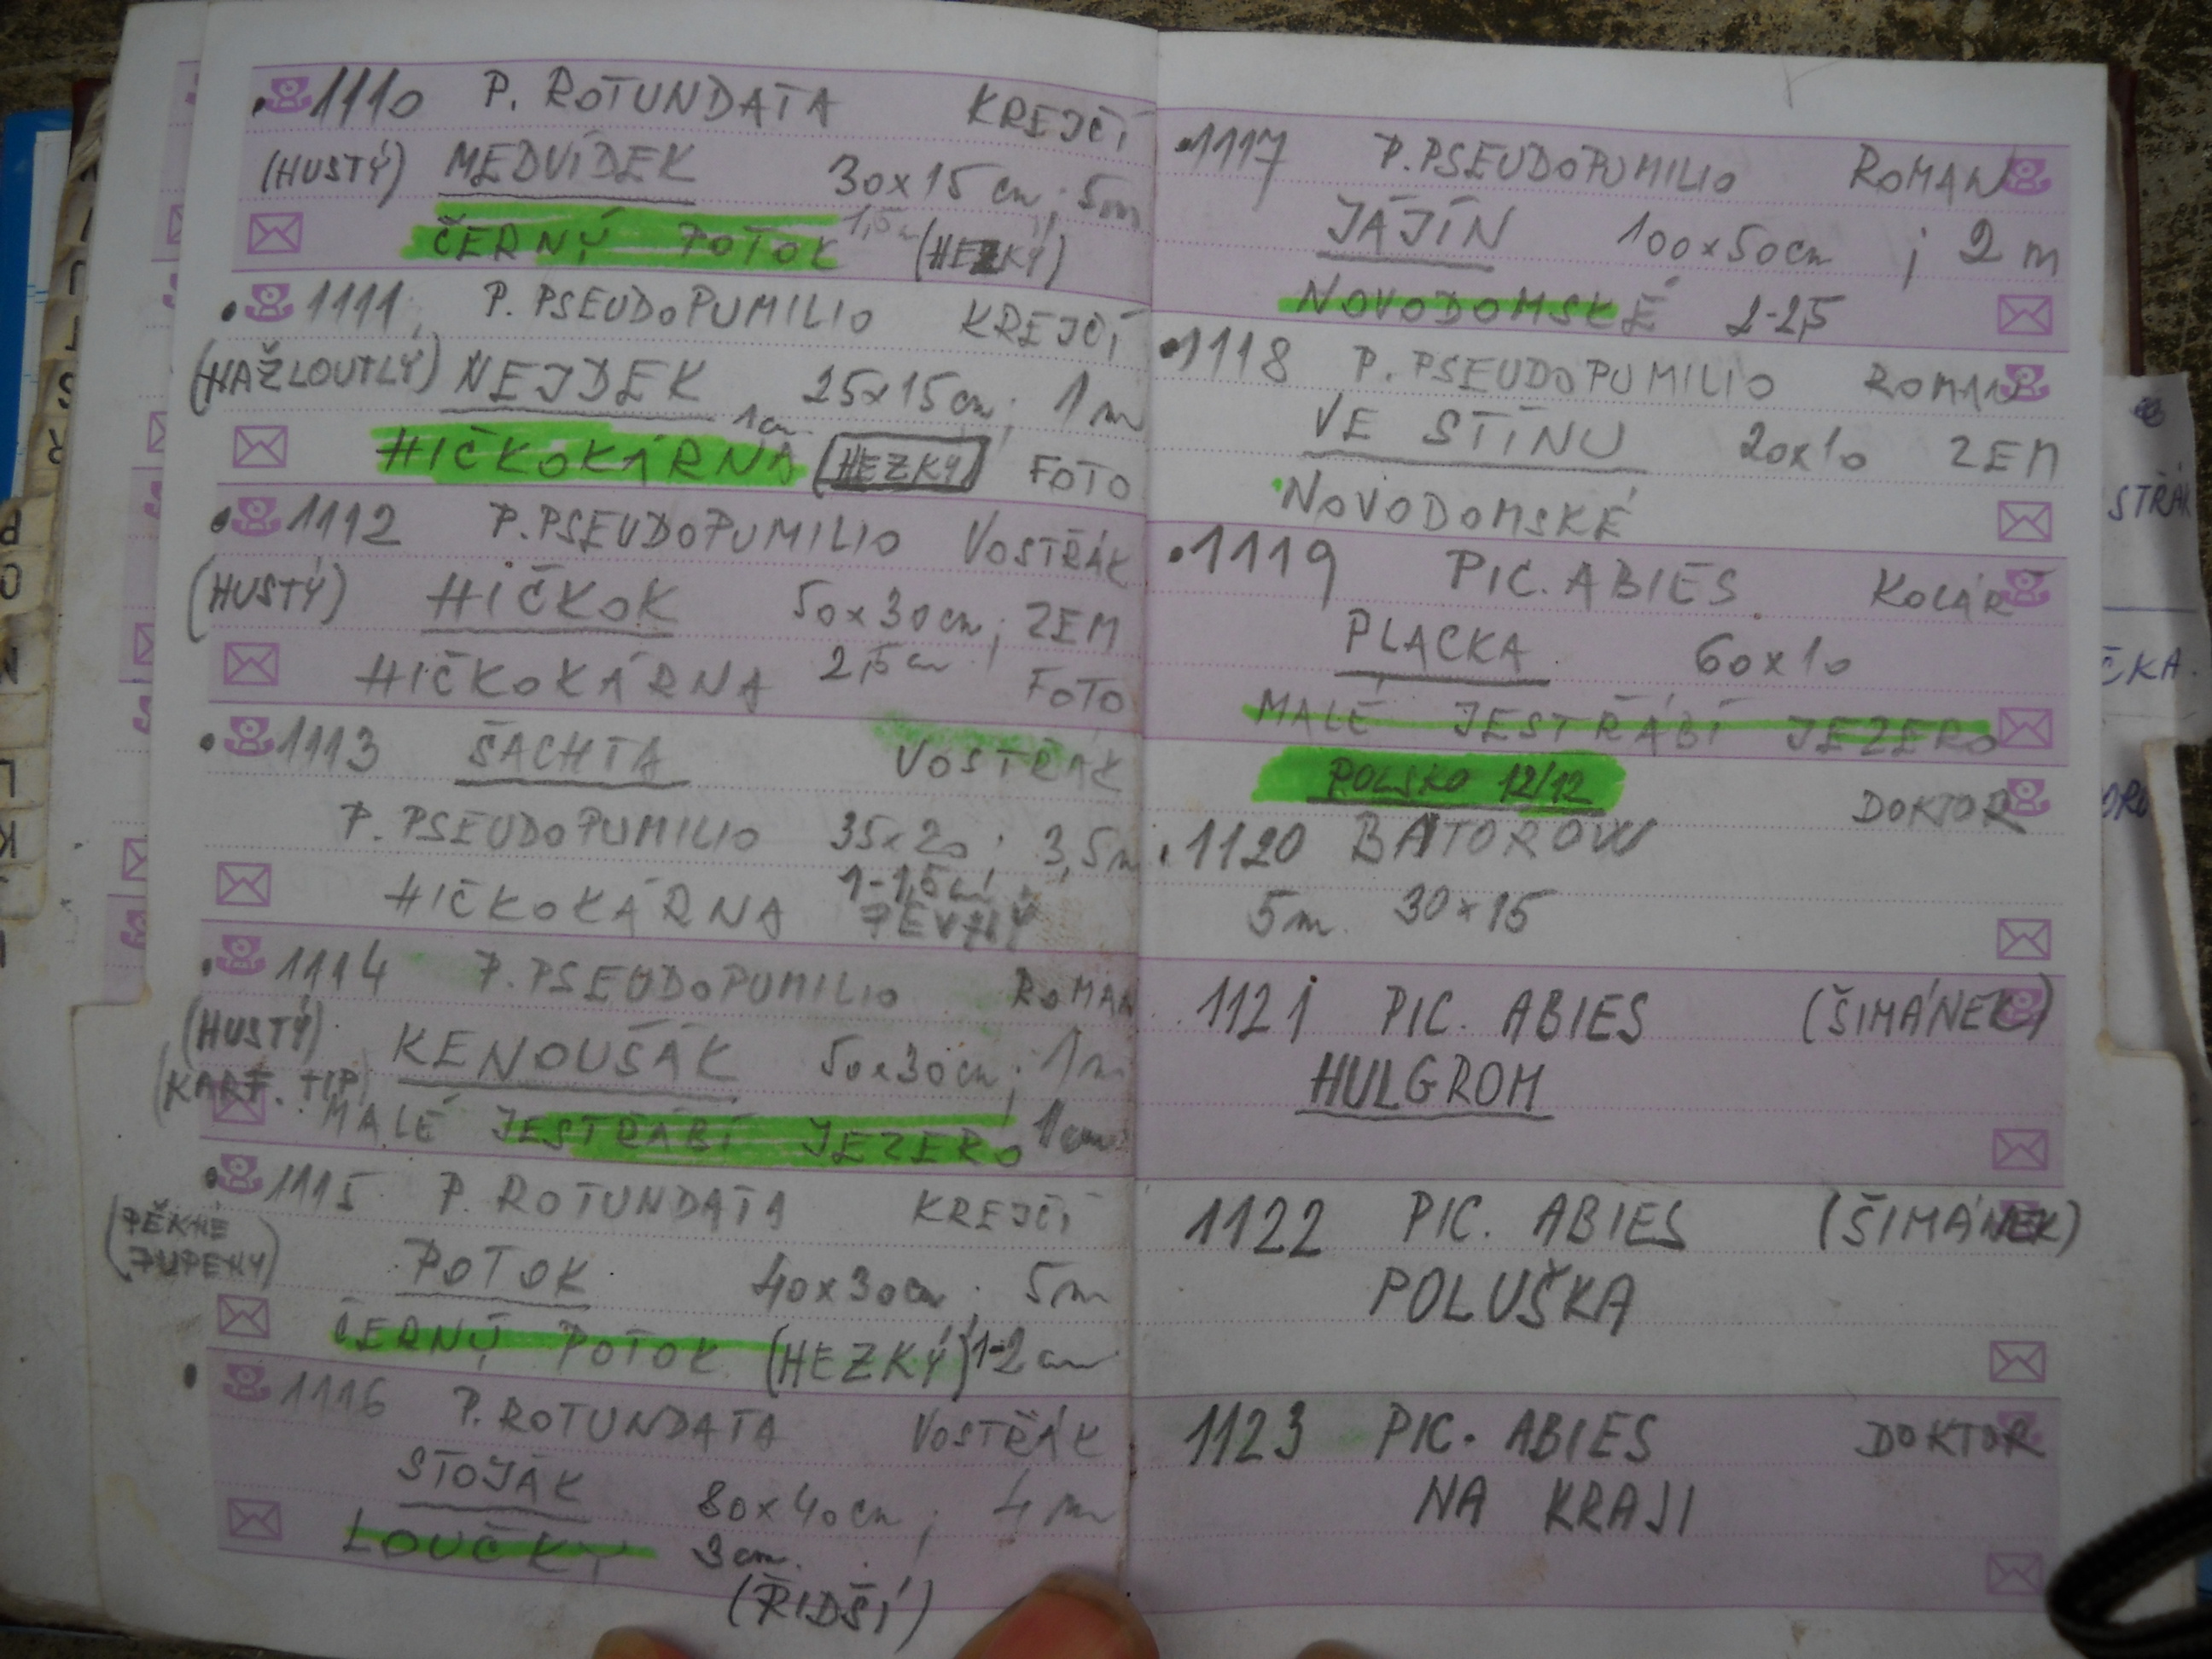 1110 P. ROTUNDATA KREJČÍ
(HUSTÝ) MEDVÍDEK 30x15 cm; 5m
ČERNÝ POTOK 1,5cm (HEZKÝ)
1111 P. PSEUDOPUMILIO KREJČÍ
(NAŽLOUTLÝ) NEJDEK 25x15cm; 1m
HIČKOKÁRNA 1cm (HEZKÝ) FOTO
1112 P. PSEUDOPUMILIO VOSTŘÁK
(HUSTÝ) HIČKOK 50x30cm; ZEM
HIČKOKÁRNA 2,5cm FOTO
1113 ŠACHTA VOSTŘÁK
P. PSEUDOPUMILIO 35x20; 3,5m
HIČKOKÁRNA 1-1,5cm
PEVNÝ
1114 P. PSEUDOPUMILIO ROMAN
(HUSTÝ) KENOUŠÁK 50x30cm; 1m
(KART. TIP)
MALÉ JESTŘÁBÍ JEZERO 1cm
1115 P. ROTUNDATA KREJČÍ
(PĚKNÉ PUPENY) POTOK 40x30cm; 5m
ČERNÝ POTOK (HEZKÝ) 1-2cm
1116 P. ROTUNDATA VOSTŘÁK
STOJÁK 80x40cm; 4m
LOUČKY 3cm.
(ŘIDŠÍ)
1117 P. PSEUDOPUMILIO ROMAN
JÁJÍN 100x50cm; 2m
NOVODOMSKÉ 2-2,5
1118 P. PSEUDOPUMILIO ROMAN
VE STÍNU 20x10 ZEM
NOVODOMSKÉ
1119 PIC. ABIES KOLÁŘ
PLACKA 60x10
MALÉ JESTŘÁBÍ JEZERO
POLSKO 12/12
DOKTOR
1120 BATOROW
5m 30x15
1121 PIC. ABIES (ŠIMÁNEK)
HULGROM
1122 PIC. ABIES (ŠIMÁNEK)
POLUŠKA
1123 PIC. ABIES DOKTOR
NA KRAJI